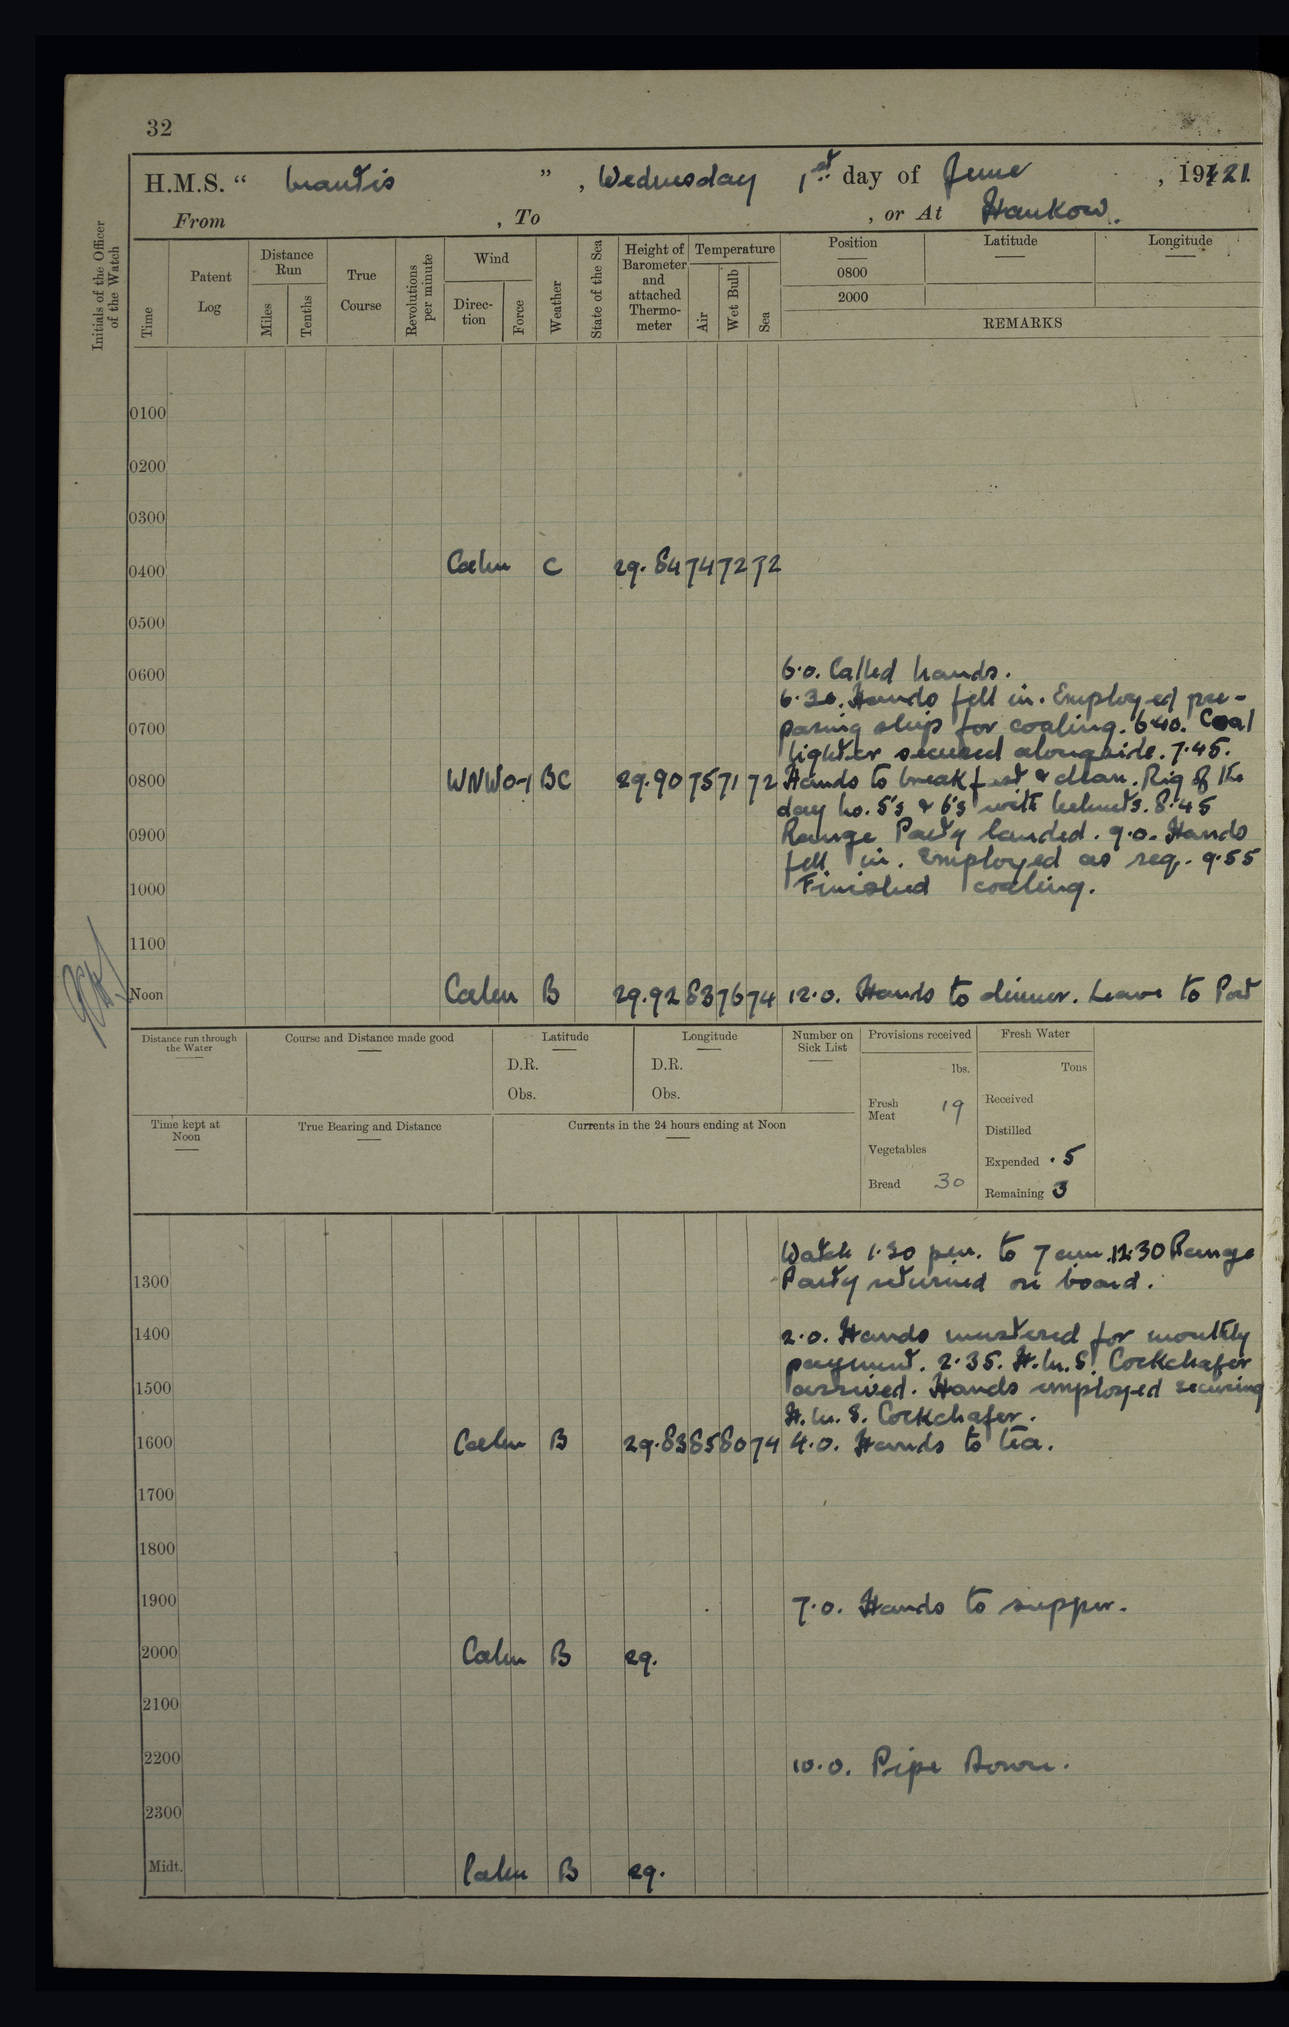 32
H.M.S. “ Mantis ” , Wednesday 1st day of June , 1921.
From , To , or At Hankow.
Initials of the Officer of the Watch
Time
Patent Log
Distance Run
Miles
Tenths
True Course
Revolutions per minute
Wind
Direc-tion
Force
Weather
State of the Sea
Height of Barometer and attached Thermo-meter
Temperature
Air
Wet Bulb
Sea
Position Latitude Longitude
0800
2000
REMARKS
0100
0200
0300
0400 Calm C 29.84 74 72 72
0500
0600 6.0. Called hands.
6.30. Hands fell in. Employed pre-
0700 paring ship for coaling. 6.40. Coal
lighter secured alongside. 7.45.
0800 WNW 0-1 BC 29.90 75 71 72 Hands to breakfast & clean. Rig of the
day No. 5's & 6's with helmets. 8.45
0900 Range Party landed. 9.0. Hands
fell in. Employed as req. 9.55
1000 Finished coaling.
1100
Noon Calm B 29.92 83 76 74 12.0. Hands to dinner. Leave to Port
Distance run through the Water
Course and Distance made good
Latitude
D.R.
Obs.
Longitude
D.R.
Obs.
Number on Sick List
Provisions received
lbs.
Fresh Meat 19
Vegetables
Bread 30
Fresh Water
Tons
Received
Distilled
Expended .5
Remaining 3
Time kept at Noon
True Bearing and Distance
Currents in the 24 hours ending at Noon
Watch 1.30 pm. to 7 am. 12.30 Range
1300 Party returned on board.
1400 2.0. Hands mustered for monthly
payment. 2.35. H.M.S. Cockchafer
1500 arrived. Hands employed securing
H.M.S. Cockchafer.
1600 Calm B 29.83 85 80 74 4.0. Hands to tea.
1700
1800
1900 7.0. Hands to supper.
2000 Calm B 29.
2100
2200 10.0. Pipe Down.
2300
Midt. Calm B 29.